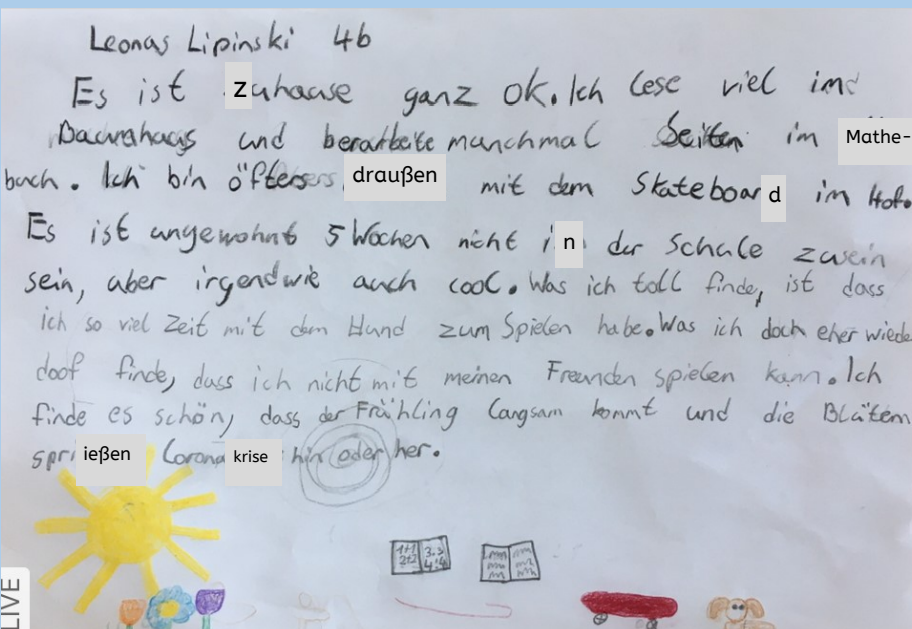 Leonas Lipinski 4b
Es ist Zuhause ganz ok. Ich lese viel im
Baumhaus und berarbeite manchmal Seiten im Mathe-
buch. Ich bin öfters draußen mit dem Skateboard im Hof.
Es ist ungewohnt 5 Wochen nicht in der Schule zusein
sein, aber irgendwie auch cool. Was ich toll finde, ist dass
ich so viel Zeit mit dem Hund zum Spielen habe. Was ich doch eher wiede
doof finde, dass ich nicht mit meinen Freunden spielen kann. Ich
finde es schön, dass der Frühling langsam kommt und die Blüten
sprießen Coronakrise hin oder her.
1+1
2+2
4:4
LIVE